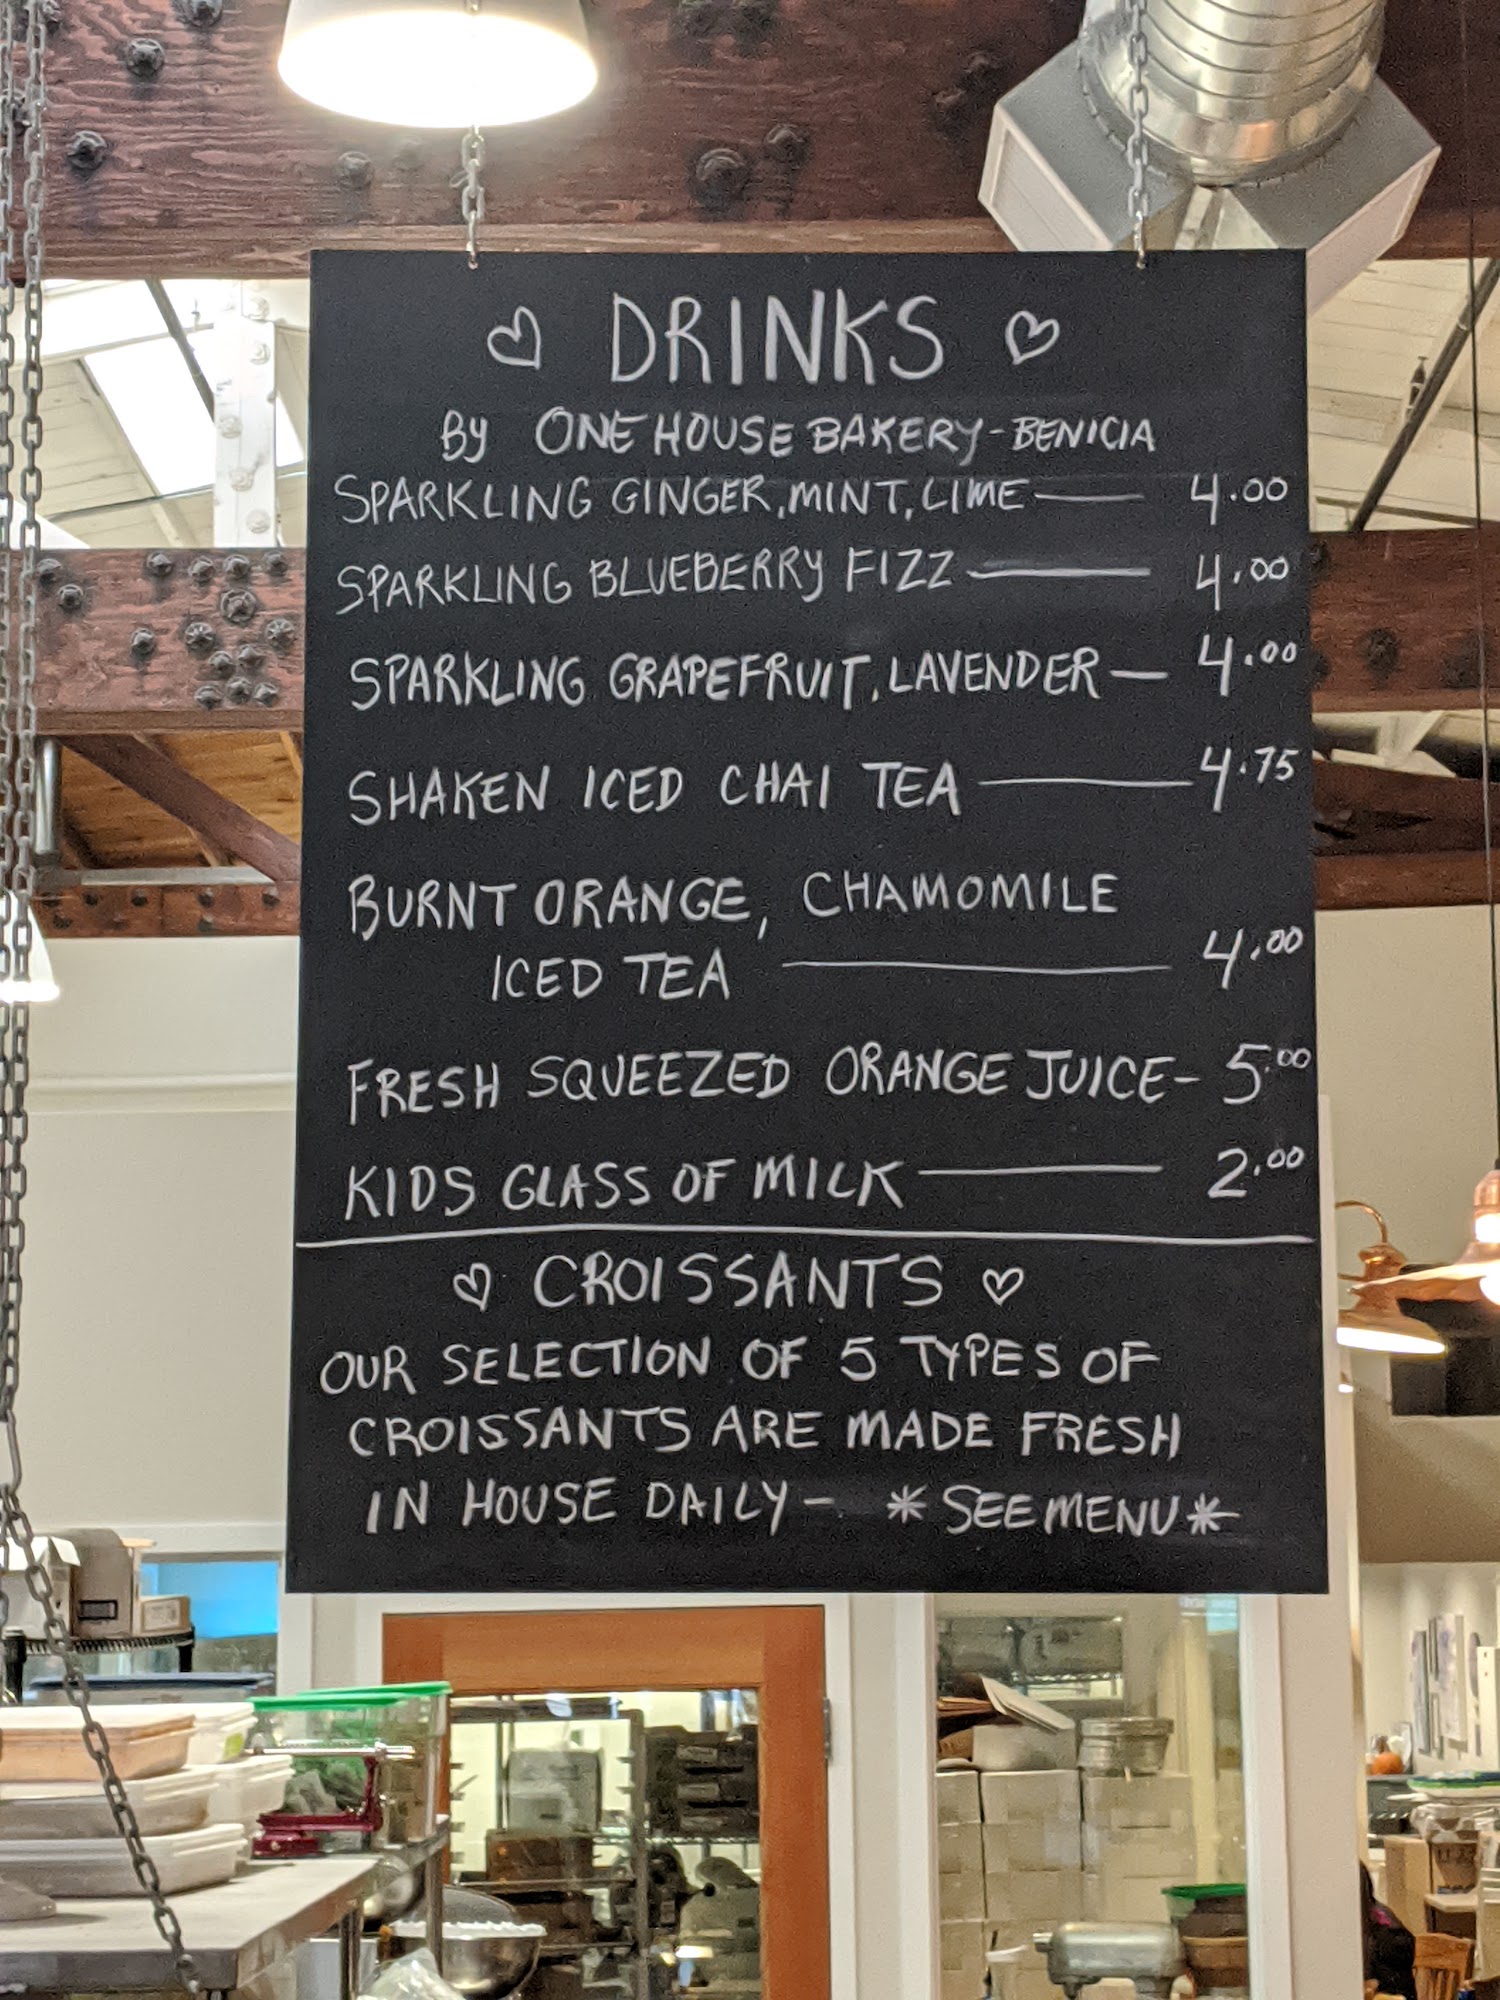 DRINKS
BY ONE HOUSE BAKERY-BENICIA
SPARKLING GINGER, MINT, LIME — 4.00
SPARKLING BLUEBERRY FIZZ — 4.00
SPARKLING GRAPEFRUIT, LAVENDER — 4.00
SHAKEN ICED CHAI TEA — 4.75
BURNT ORANGE, CHAMOMILE
ICED TEA — 4.00
FRESH SQUEEZED ORANGE JUICE - 5.00
KIDS GLASS OF MILK — 2.00
CROISSANTS
OUR SELECTION OF 5 TYPES OF
CROISSANTS ARE MADE FRESH
IN HOUSE DAILY - *SEE MENU*